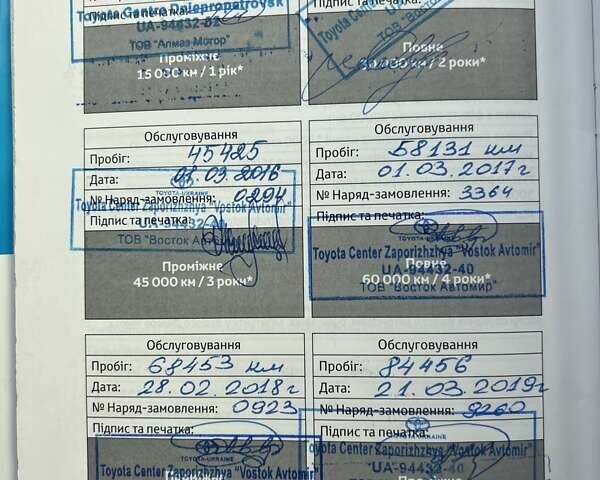 Підпис та печатка:
Toyota Centre Dniepropetrovsk
UA-94632-02
ТОВ "Алмаз Мотор"
Проміжне
15 000 км / 1 рік*
Підпис та печатка:
Toyota Center
Повне
30 000 км / 2 роки*
Обслуговування
Пробіг: 45425
Дата: 01.03.2016
№ Наряд-замовлення: 0294
Підпис та печатка:
TOYOTA-UKRAINE
Toyota Center Zaporizhzhya "Vostok Avtomir"
UA-94432-40
ТОВ "Восток Автомир"
Проміжне
45 000 км / 3 роки*
Обслуговування
Пробіг: 58131 км
Дата: 01.03.2017г
№ Наряд-замовлення: 3364
Підпис та печатка:
TOYOTA-UKRAINE
Toyota Center Zaporizhzhya "Vostok Avtomir"
UA-94432-40
Повне
ТОВ "Восток Автомир"
60 000 км / 4 роки*
Обслуговування
Пробіг: 68453 км
Дата: 28.02.2018г
№ Наряд-замовлення: 0923
Підпис та печатка:
TOYOTA-UKRAINE
Toyota Center Zaporizhzhya "Vostok Avtomir"
Обслуговування
Пробіг: 84456
Дата: 21.03.2019г
№ Наряд-замовлення: 9260
Підпис та печатка:
TOYOTA-UKRAINE
Toyota Center Zaporizhzhya "Vostok Avtomir"
UA-94432-40